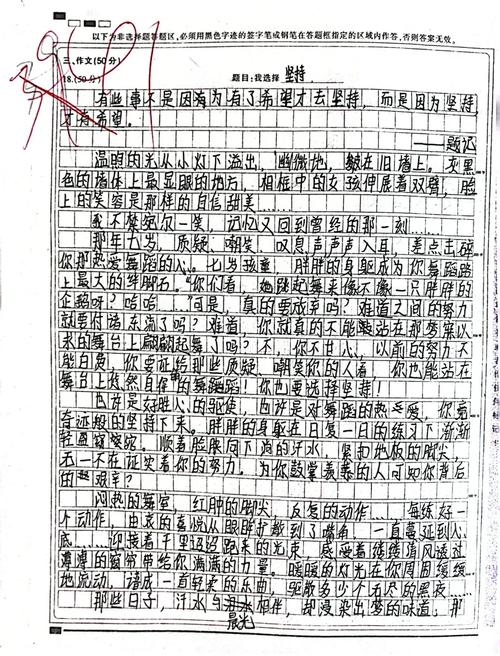 以下为非选择题答题区，必须用黑色字迹的签字笔或钢笔在答题框指定的区域内作答，否则答案无效。
三、作文(50分)
18.(50分)
题目：我选择 坚持
有些事不是因为有了希望才去坚持，而是因为坚持
才有希望。
——题记
温暖的光从小灯下溢出，幽微地，躲在旧墙上。灰黑
色的墙体上最显眼的地方，相框中的女孩伸展着双臂，脸
上的笑容是那样的自信甜美……
我不禁宛尔一笑，记忆又回到曾经的那一刻……
那年七岁，质疑、嘲笑、叹息声声声入耳，差点击碎
你那热爱舞蹈的心。七岁孩童，胖胖的身躯成为你舞蹈路
上最大的绊脚石。“你们看，她跳起舞来像不像一只胖胖的
企鹅呀？哈哈……”可是，真的要放弃吗？难道之间的努力
就要付诸东流了吗？难道，你就真的不能站在那梦寐以
求的舞台上翩翩起舞了吗？不，你不甘心，以前的努力不
能白费，你要证给那些质疑、嘲笑你的人看，你也能站在
舞台上悠然自信的舞蹈！你也要选择坚持！
也许是好胜心的驱使，也许是对舞蹈的热爱，你竟
奇迹般的坚持下来。胖胖的身躯在日复一日的练习下渐渐
轻盈窈窕。顺着脸庞向下淌的汗水，紧扣地板的脚尖，
无一不在证实着你的努力。为你鼓掌羡慕的人可知你背后
的艰辛？
闷热的舞室，红肿的脚尖，反复的动作……每练好一
个动作，由衷的喜悦从眼眸扩散到了嘴角，一直蔓延到心
底……迎接着千里迢迢跑来的光束，感受着缕缕清风透过
薄薄的窗帘带给你满满的力量。暖暖的灯光在你周围缓缓
地流动，谱成一首轻柔的乐曲，驱散多少不无尽的黑夜……
那些日子，汗水与相伴，却浸染出梦的味道，那
晨光